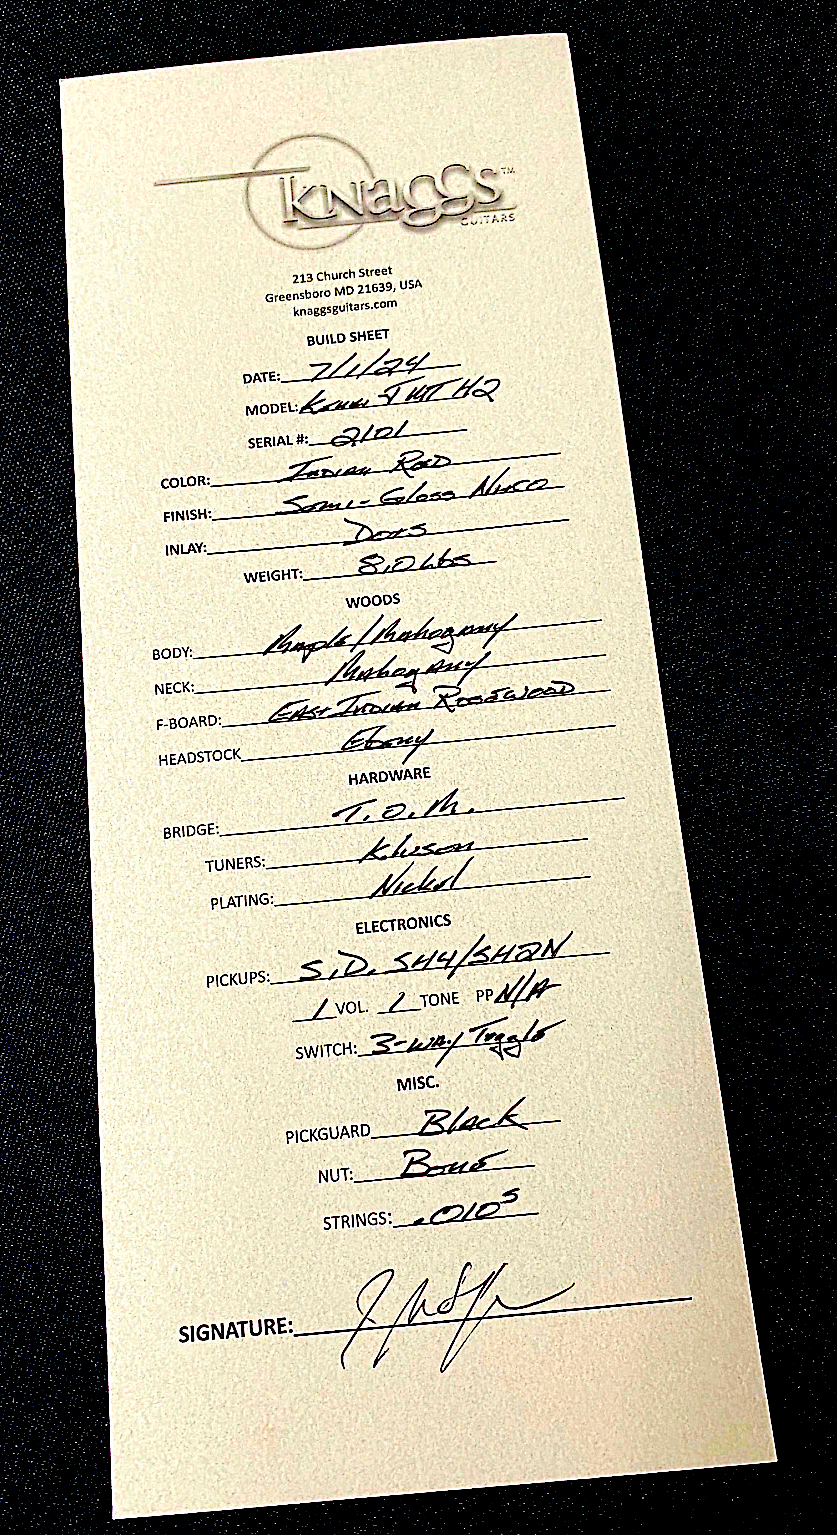 KNAGGS™
GUITARS
213 Church Street
Greensboro MD 21639, USA
knaggsguitars.com
BUILD SHEET
DATE: 7/1/24
MODEL: Kenai J HT H2
SERIAL #: 2101
COLOR: Indian Red
FINISH: Semi-Gloss Nitro
INLAY: Dots
WEIGHT: 8.0 Lbs
WOODS
BODY: Maple/Mahogany
NECK: Mahogany
F-BOARD: East Indian Rosewood
HEADSTOCK Ebony
HARDWARE
BRIDGE: T.O.M.
TUNERS: Kluson
PLATING: Nickel
ELECTRONICS
PICKUPS: S.D. SH4/SH2N
1 VOL. 1 TONE PP N/A
SWITCH: 3-way Toggle
MISC.
PICKGUARD Black
NUT: Bone
STRINGS: .010s
SIGNATURE: